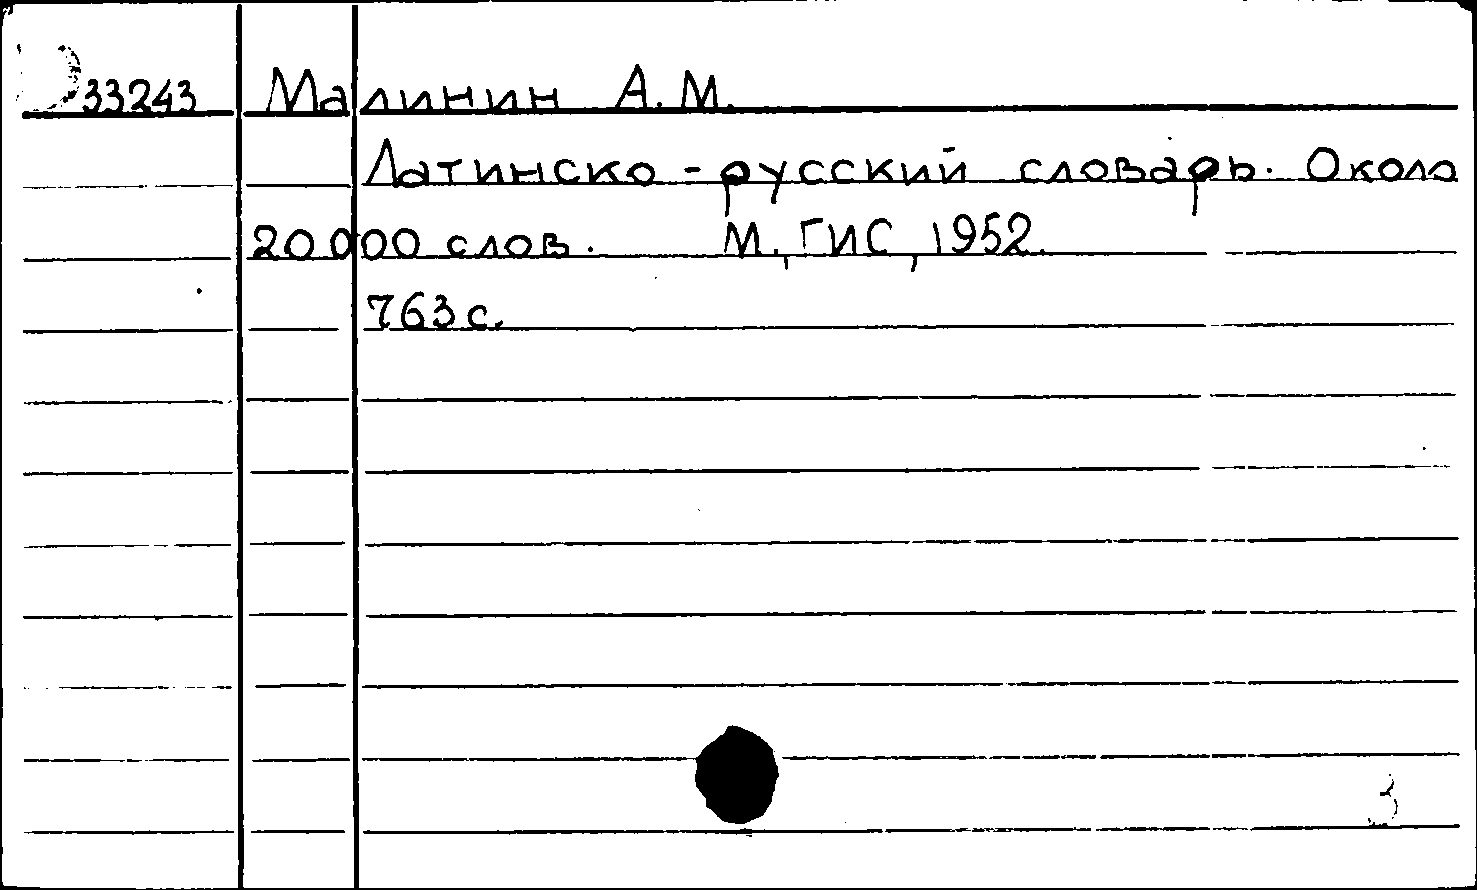 33243 Малинин А.М.
Латинско-русский словарь. Около
20000 слов. М., ГИС, 1952.
763 с.
3